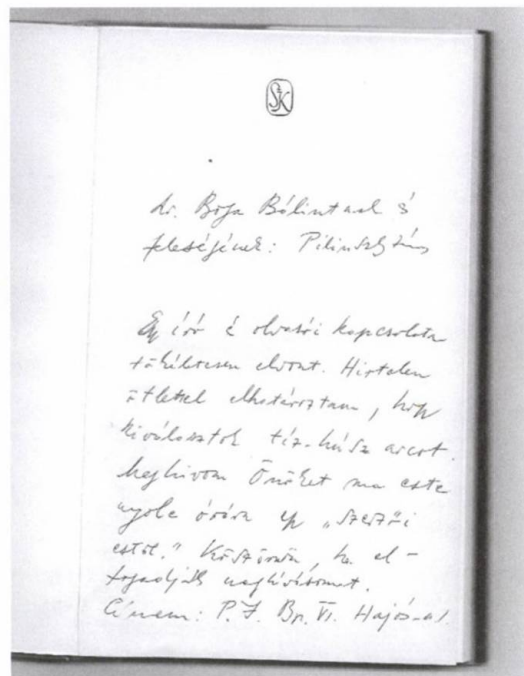 SzK
dr. Boja Bálintnak és
feleségének: Pilinszky János
Egy író és olvasói kapcsolata
tökéletesen elvont. Hirtelen
ötlettel elhatároztam, hogy
kiválasztok tíz-húsz arcot.
Meghivom Önöket ma este
nyolc órára egy „szerzői
estre." Köszönöm, ha el-
fogadják meghívásomat.
Címem: P.J. Bp. VI. Hajós-u 1.